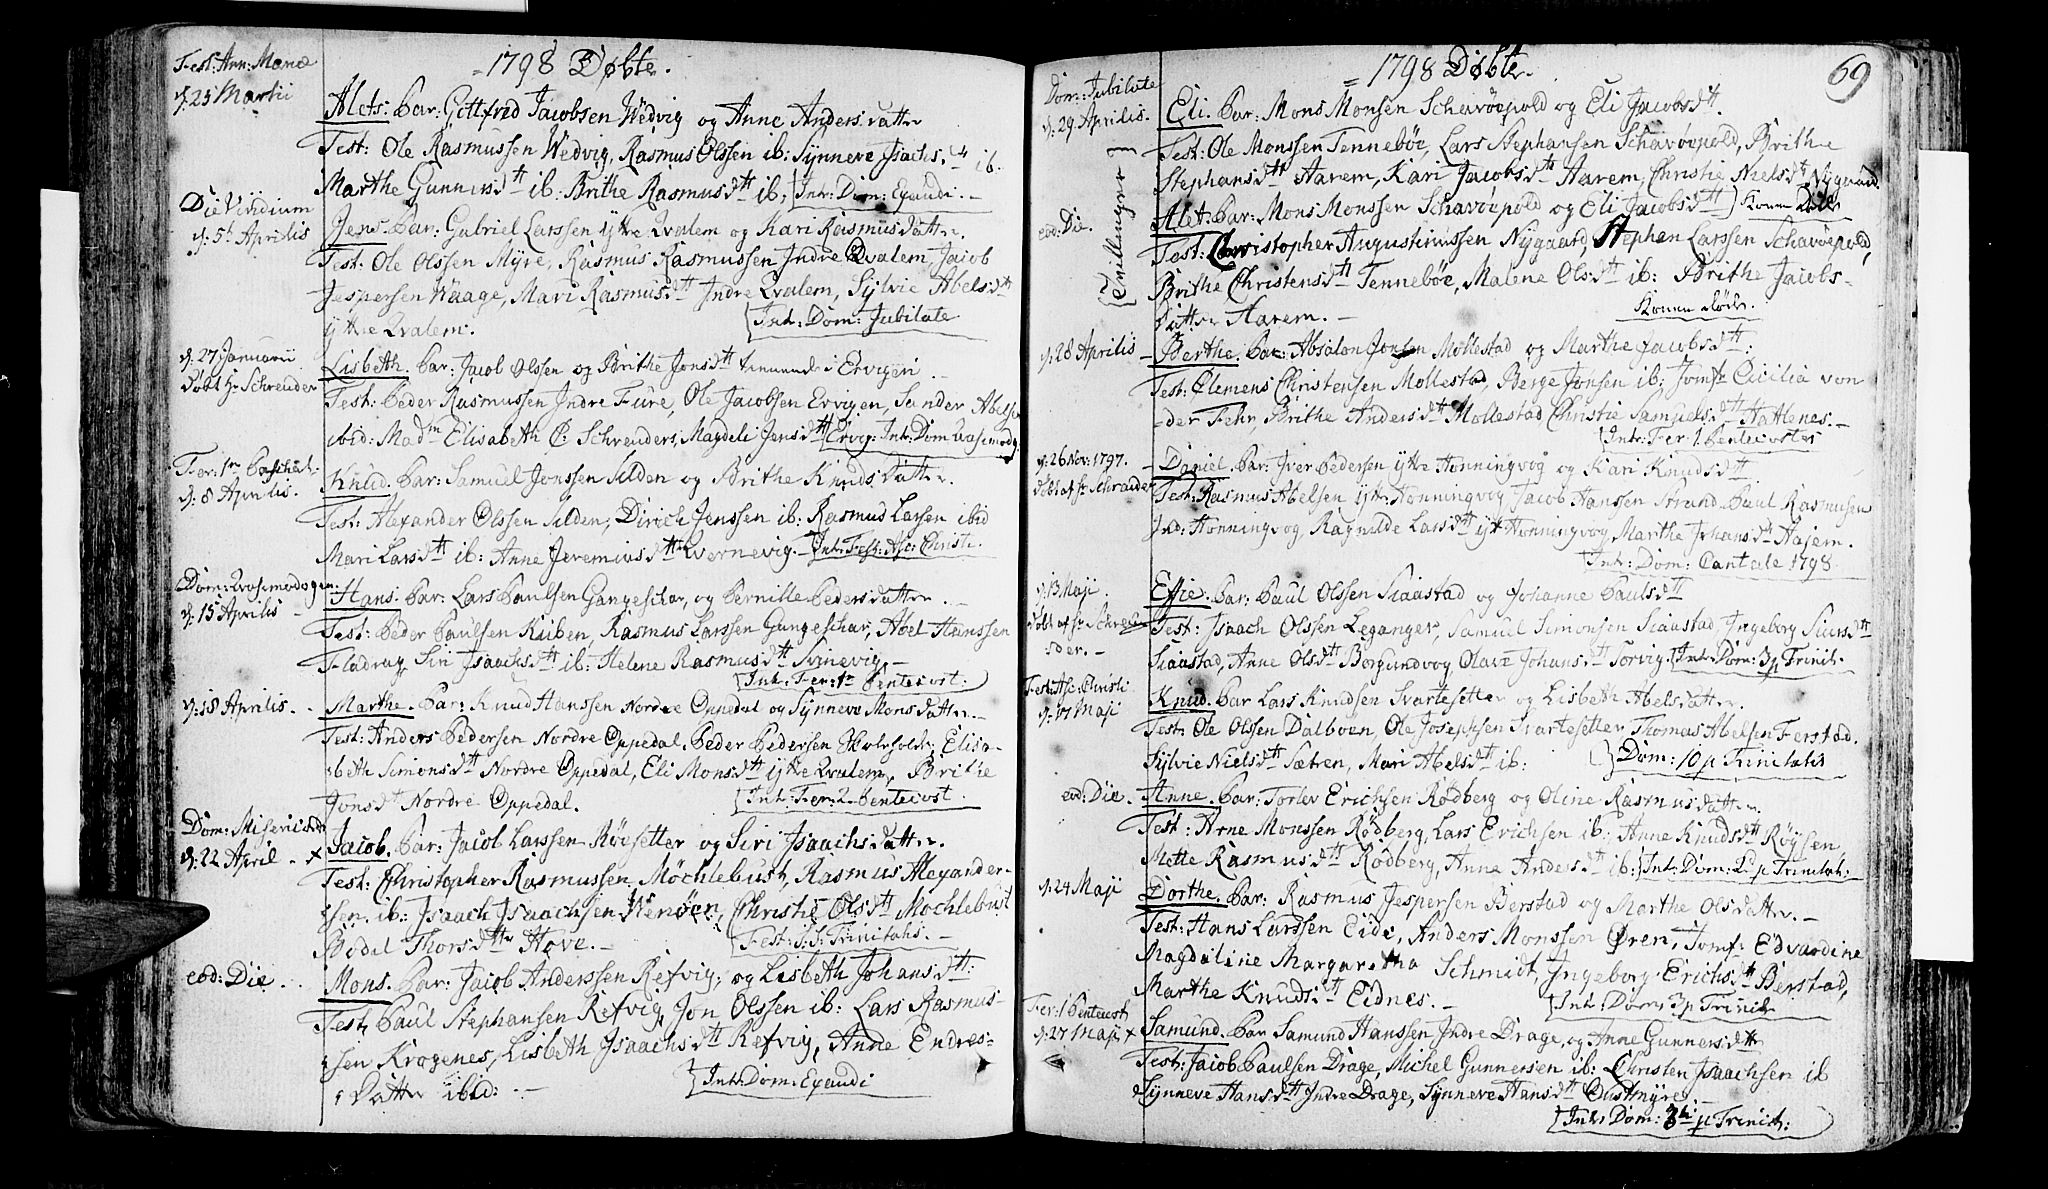 = 1798 Døbte.
Fest: Ann: Mariæ
d: 25 Martii
Alets: Par: Gottfrid Jacobsen Wedvig og Anne Anders datter
Test: Ole Rasmussen Wedvig, Rasmus Olssen ib: Synneve Isachsd ib.
Marthe Gunnersdtt ib: Brithe Rasmusdtt ib: Int: Dom: Exaudi. -
Die Viridium
d: 5te Aprilis
Jens. Par: Gabriel Larssen ytre Qvalem og Kari Rasmusdatter.
Test: Ole Olssen Myre, Rasmus Rasmussen Indre Qvalem, Jacob
Jespersen Waage, Mari Rasmusdtt Indre Qvalem, Sylvie Abelsdtt
ytre Qvalem. Int: Dom: Jubilate
d: 27 Januarii
døbt Hr Schreuder
Lisbeth. Par: Jacob Olssen og Brithe Jonsdtt i Ervigen
Test: Peder Rasmussen Indre Fure, Ole Jacobsen Ervigen, Sander Abels
ibid: Madm Elisabeth C: Schreuders, Magdeli Jensdtt Ervig: Int: Dom Qvasimodog.
Fer: 1ma Paschat:
d: 8 Aprilis.
Knud. Par: Samuel Jonssen Silden og Brithe Knudsdatter.
Test: Alexander Olssen Silden, Dirich Jenssen ib: Rasmus Larsen ibid
Mari Larsdtt ib: Anne Jeremiusdtt Qvernevig. - Int: Fest: Asc: Christi.
Dom: Qvasimodogen:
d: 15 Aprilis -
Hans. Par: Lars Paulsen Gangeschar, og Pernille Pedersdatter. -
Test: Peder Paulsen Kuben, Rasmus Larssen Gangeschar, Abel Hanssen
Fladrag, Siri Isaachsdtt ib: Helene Rasmusdtt Svinevig. -
Int: Fer: 1 Pentecost:
d: 18 Aprilis. -
Marthe. Par: Knud Hanssen Nordre Oppedal og Synneve Monsdatter. -
Test: Anders Pedersen Nordre Oppedal, Peder Pedersen Skoleholder, Elisa-
beth Simonsdtt Nordre Oppedal, Eli Monsdtt ytre Qvalem, Brithe
Jonsdtt Nordre Oppedal. Int: Fer: 2 Pentecost
Dom: Misericord:
d: 22 April - x
Jacob. Par: Jacob Larssen Røesetter og Siri Isaachsdatter.
Test: Christopher Rasmussen Møchlebust, Rasmus Alexander-
sen ib: Isaach Isaachsen Werøen, Christie Olsdtt Mochlebust
Bødal Thorsdtt Hove. - Fest: S: S: Trinitatis. -
eod: Die
Mons. Par: Jacob Anderssen Refvig, og Lisbeth Johansdtt:
Test: Paul Stephansen Refvig, Jon Olssen ib: Lars Rasmus-
sen Krogenes, Lisbeth Isaachsdtt Refvig, Anne Endres-
datter ibid: - Int: Dom: Exaudi
= 1798 Døbte.
69
Dom: Jubilate
d: 29 Aprilis.
Tvillinger
Eli. Par: Mons Monsen Schavøepold og Eli Jacobsdtt.
Test: Ole Monssen Tennebøe, Lars Stephansen Schavøepold, Brithe
Stephansdtt Aarem, Kari Jacobsdtt Aarem, Christie Nielsdtt Nygaard.
eod: Die.
Alet: Par: Mons Monssen Schavøepold og Eli Jacobsdtt Konen død
Test: Christopher Augustinussen Nygaard, Stephan Larssen Schavøepold,
Brithe Christensdtt Tennebøe, Malene Olsdtt ib: Brithe Jacobs-
datter Aarem. - Konen døde.
d: 28 Aprilis -
Berthe. Par: Absalon Jonsen Mollestad og Marthe Jacobsdtt:
Test: Clemens Christensen Mollestad, Berge Jonsen ib: Jomfr Cicilia von
der Fehr, Brithe Andersdtt Mollestad Christie Samuelsdtt Hatlenes. -
Int: Fer: 1 Pentecostes
d: 26 Nov: 1797. -
døbt af Hr Schreuder
Daniel. Par: Iver Pedersen ytre Honningvog og Kari Knudsdtt
Test: Rasmus Abelsen ytre Honningvig Jacob Hanssen Strand Paul Rasmusen
Ind: Honningvog Ragnilde Larsdtt ytr Honningvog Marthe Johansdtt Aajem.
Int: Dom: Cantate 1798.
d: 13 Maji.
døbt af Hr Schreu-
der. -
Effie. Par: Paul Olssen Staastad og Johanne Paulsdtt
Test: Isaach Olssen Leganger, Samuel Simonsen Staastad, Ingeborg Siursdtt
Staastad, Anne Olsdtt Borgundvog Olave Johansdtt Torvig. Int: Dom: 3 p Trinit.
Fest: Asc: Christi
d: 17 Maji
Knud. Par Lars Knudsen Svartesetter og Lisbeth Abelsdatter.
Test: Ole Olssen Dalboen, Ole Josephsen Svartesetter Thomas Abelsen Ferstad.
Sylvie Nielsdtt Sætren, Mari Abelsdtt ib: Dom: 10 p Trinitatis
eod: Die.
Anne. Par: Torlev Erichsen Rødberg og Oline Rasmusdatter.
Test: Arne Monssen Rødberg, Lars Erichsen ib: Anne Knudsdtt Røysen,
Mette Rasmusdtt Rødberg, Anne Andersdtt ib: Int: Dom: 2 p Trinitat:
d: 24 Maji
Dorthe. Par: Rasmus Jespersen Berstad og Marthe Olsdatter. -
Test: Hans Larssen Eide, Anders Monssen Øren, Jomf: Edvardine
Magdaline Margaretha Schmidt, Ingeborg Erichsdtt Berstad,
Marthe Knudsdtt Eidnes. - Int: Dom: 3 p Trinit
Fer: 1 Pentecost
d: 27 Maji x
Samund. Par Samund Hanssen Indre Drage, og Anne Gunnersdtt
Test: Jacob Paulsen Drage, Michel Gunnersen ib: Christen Isaachsen ib
Synneve Hansdtt Indre Drage, Synneve Hansdtt Oustmyre. -
Int: Dom: 3 p Trinit: